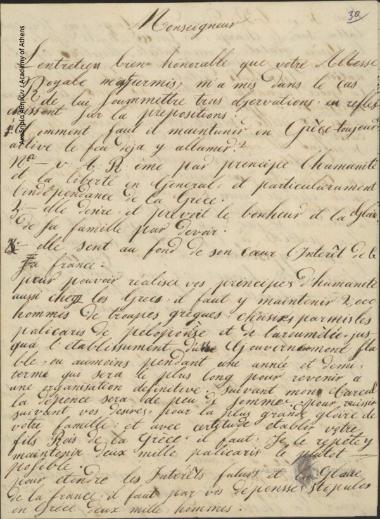 30
Monseigneur
L'entretien bien honorable que votre Altesse
Royale m'a permis, m'a mis dans le cas
de lui soummettre trois
sur la preposition:
Comment faut il maintunir en Grèce toujour
active le feu deja y allumer?
v. A. R. ême par principe l'humanité
et la liberté en General, et particulièrement
l'independance de la Grèce.
elle desire, et prevoit le bonheur et la Gloire
de sa famille par devoir.
elle sent au fond de son cœur l'interêt de
la france.
pour pouvoir realiser vos principes d'humanité
aussi chez les Grecs, il faut y maintenir 2,000
hommes de troupes greques choisis parmis les
palicares de peloponèse et de la roumelie, jus
qua l'etablissement du Gouvernement sta
ble, ou aumoins pendant une année et demi,
terme qui sera le plus long pour revenir a
une organisation definitive. suivant mon
la depence sera de peu de somme, pour
suivant vos desires, pour la plus grand gloire de
votre famille, et avec certitude etablir votre
fils Roi de la Grèce, il faut, Je le repete y
maintenir deux mille palicares le plutot
possible.
pour etendre les Interets futurs et Gloire
de la france, il faut par vos depenses
en Grèce deux mille hommes.
Academy of Athens